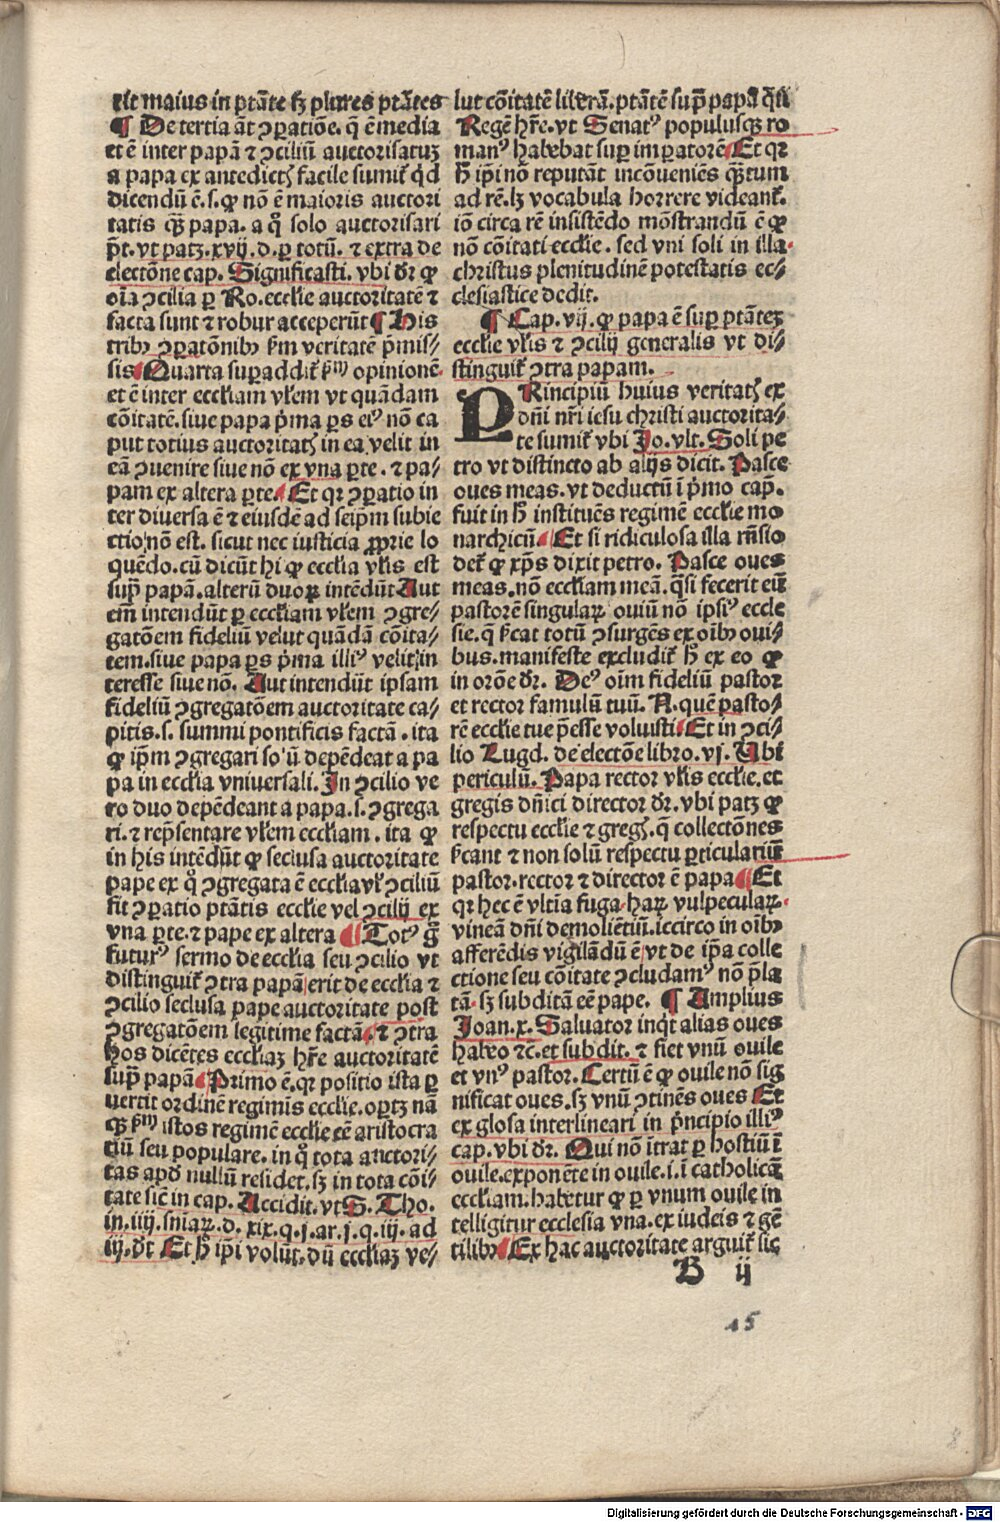 rit maius in ptāte sꝫ plures ptātes
¶ De tertia āt ꝯpatiōe. q̄ ē media
et ē inter papā ⁊ ꝯciliū auctorisatuꝫ
a papa ex antedictꝭ facile sumit̄ qd
dicendū ē. s. ꝙ nō ē maioris auctori
tatis qꝫ papa. a q̊ solo auctorisari
pt̄. vt patꝫ .xvij. d. ꝑ totū. ⁊ extra de
electōne cap. Significasti. vbi dr̄ ꝙ
oīa ꝯcilia ꝑ Ro. ecclie auctoritatē ⁊
facta sunt ⁊ robur acceperūt ¶ His
tribꝫ ꝯꝑatōnibꝫ ẜm veritatē p̄mis⸗
sis ¶ Quarta superaddit̄ ẜm opinionē
et ē inter eccliam vl̄em vt quādam
cōitatē. siue papa pͥma ꝑs eiꝰ nō ca
put totius auctoritatꝭ in ea velit in
eā ꝯuenire siue nō ex vna ꝑte. ⁊ pa⸗
pam ex altera ꝑte ¶ Et qꝛ ꝯꝑatio in
ter diuersa ē ⁊ eiusdē ad seip̄m subie
ctio nō est. sicut nec iusticia ꝓprie lo
quēdo. cū dicūt hi ꝙ ecclia vl̄is est
sup̄ papā. alterū duoꝝ intēdūt Aut
em̄ intendūt ꝑ eccliam vl̄em ꝯgre⸗
gatōem fideliū velut quādā cōita⸗
tem. siue papa ꝑs pͥma illiꝰ velit in
teresse siue nō. Aut intendūt ipsam
fideliū ꝯgregatōem auctoritate ca⸗
pitis. s. summi pontificis factā. ita
ꝙ ip̄m ꝯgregari solū depēdeat a pa
pa in ecclia vniuersali. In ꝯcilio ve
ro duo depēdeant a papa. s. ꝯgrega
ri. ⁊ rep̄sentare vl̄em eccliam. ita ꝙ
in his intēdūt ꝙ seclusa auctoritate
pape ex q̊ ꝯgregata ē ecclia vl̄ ꝯciliū
fit ꝯꝑatio ptātis ecclie vel ꝯcilij ex
vna ꝑte. ⁊ pape ex altera ¶ Totꝰ g̊
futurꝰ sermo de ecclia seu ꝯcilio vt
distinguit̄ ꝯtra papā erit de ecclia ⁊
ꝯcilio seclusa pape auctoritate post
ꝯgregatōem legitime factā. ⁊ ꝯtra
hos dicētes eccliaꝫ hr̄e auctoritatē
sup̄ papā ¶ Primo ē. qꝛ positio ista ꝑ
uertit ordinē regimīs ecclie. oportꝫ nā
qꝫ ẜm istos regimē ecclie eē aristocra
tiū seu populare. in q̊ tota auctori⸗
tas apd nullū residet. sꝫ in tota cōi⸗
tate sic̄ in cap. Accidit. vt S. Tho.
in .iiij. sniaꝝ. d. xix. q. j. ar. j. q. iij. ad
iij. dt̄ Et h̄ ip̄i volūt. dū eccliaꝫ ve⸗
lut cōitatē liberā. ptātē sup̄ papā q̄si
Regē hr̄e. vt Senatꝰ populusqꝫ ro
manꝰ habebat suꝑ imperatorē ¶ Et qꝛ
h̄ ip̄i nō reputāt incōueniēs qꝫtum
ad rē. lꝫ vocabula horrere videant̄.
iō circa rē insistēdo mōstrandū ē ꝙ
nō cōitati ecclie. sed vni soli in illa
christus plenitudinē potestatis ec⸗
clesiastice dedit.
¶ Cap. vij. ꝙ papa ē suꝑ ptātē
ecclie vl̄is ⁊ ꝯcilij generalis vt di⸗
stinguit̄ ꝯtra papam.
PRincipiū huius veritatꝭ ex
dn̄i nr̄i iesu christi auctorita⸗
te sumit̄ vbi Jo. vlt. Soli pe
tro vt distincto ab alijs dicit. Pasce
oues meas. vt deductū ī pͥmo cap.
fuit in h̄ instituēs regimē ecclie mo
narchicū ¶ Et si ridiculosa illa rn̄sio
det̄ ꝙ xp̄s dixit petro. Pasce oues
meas. nō eccliam meā. q̄si fecerit eū
pastorē singulaꝝ ouiū nō ipsiꝰ eccle
sie. q̄ ẜcat totū ꝯsurgēs ex oībꝫ oui⸗
bus. manifeste excludit̄ h̄ ex eo ꝙ
in orōe dr̄. Deꝰ oīm fideliū pastor
et rector famulū tuū. N. quē pasto⸗
rē ecclie tue p̄esse voluisti ¶ Et in ꝯci⸗
lio Lugd. de electōe libro. vj. Ubi
periculū. Papa rector vl̄is ecclie. et
gregis dn̄ici director dr̄. vbi patꝫ ꝙ
respectu ecclie ⁊ gregꝭ. q̄ collectōnes
ẜcant ⁊ non solū respectu ꝑticulariū
pastor. rector ⁊ director ē papa ¶ Et
qꝛ hec ē vltia fuga haꝝ vulpeculaꝝ.
vineā dn̄i demolientiū. iccirco in oībꝫ
afferēdis vigilādū ē vt de ip̄a colle
ctione seu cōitate ꝯcludamꝰ nō p̄la
tā. sꝫ subditā eē pape. ¶ Amplius
Joan. x. Saluator inqt alias oues
habeo ⁊c̄. et subdit. ⁊ fiet vnū ouile
et vnꝰ pastor. Certū ē ꝙ ouile nō sig
nificat oues. sꝫ vnū ꝯtinēs oues Et
ex glosa interlineari in pͥncipio illiꝰ
cap. vbi dr̄. Qui nō ītrat ꝑ hostiū ī
ouile. exponēte in ouile. i. ī catholicā
eccliam. habetur ꝙ ꝑ vnum ouile in
telligitur ecclesia vna. ex iudeis ⁊ gē
tilibꝫ ¶ Ex hac auctoritate arguit̄ sic
B ij
15
Digitalisierung gefördert durch die Deutsche Forschungsgemeinschaft - DFG